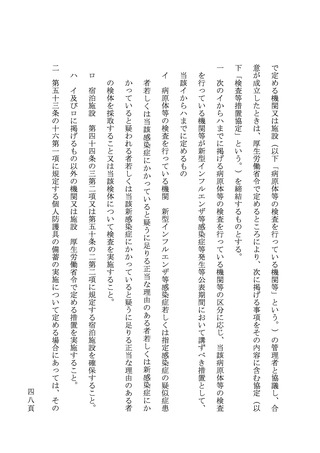 で定める機関又は施設（以下「病原体等の検査を行っている機関等」という。）の管理者と協議し、合
意が成立したときは、厚生労働省令で定めるところにより、次に掲げる事項をその内容に含む協定（以
下「検査等措置協定」という。）を締結するものとする。
一　次のイからハまでに掲げる病原体等の検査を行っている機関等の区分に応じ、当該病原体等の検査
を行っている機関等が新型インフルエンザ等感染症等発生等公表期間において講ずべき措置として、
当該イからハまでに定めるもの
イ　病原体等の検査を行っている機関　新型インフルエンザ等感染症若しくは指定感染症の疑似症患
者若しくは当該感染症にかかっていると疑うに足りる正当な理由のある者若しくは新感染症にか
かっていると疑われる者若しくは当該新感染症にかかっていると疑うに足りる正当な理由のある者
の検体を採取すること又は当該検体について検査を実施すること。
ロ　宿泊施設　第四十四条の三第二項又は第五十条の二第二項に規定する宿泊施設を確保すること。
ハ　イ及びロに掲げるもの以外の機関又は施設　厚生労働省令で定める措置を実施すること。
二　第五十三条の十六第一項に規定する個人防護具の備蓄の実施について定める場合にあっては、その
四八頁